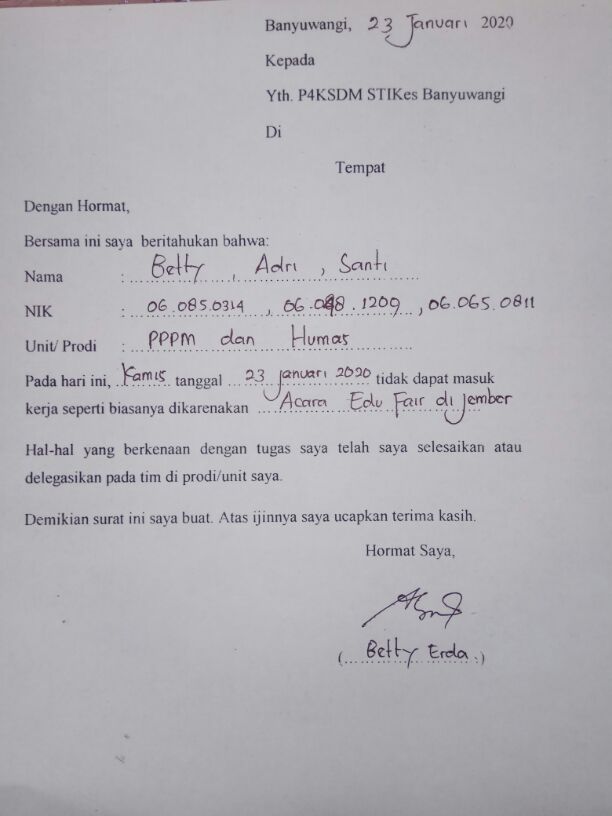 Banyuwangi, 23 Januari 2020
Kepada
Yth. P4KSDM STIKes Banyuwangi
Di
Tempat
Dengan Hormat,
Bersama ini saya beritahukan bahwa:
Nama : Betty, Adri, Santi
NIK : 06.085.0314, , 06.065.0811
Unit/ Prodi : PPPM dan Humas
Pada hari ini, Kamis tanggal 23 januari 2020 tidak dapat masuk
kerja seperti biasanya dikarenakan Acara Edu Fair di jember
Hal-hal yang berkenaan dengan tugas saya telah saya selesaikan atau
delegasikan pada tim di prodi/unit saya.
Demikian surat ini saya buat. Atas ijinnya saya ucapkan terima kasih.
Hormat Saya,
(Betty Erda.)